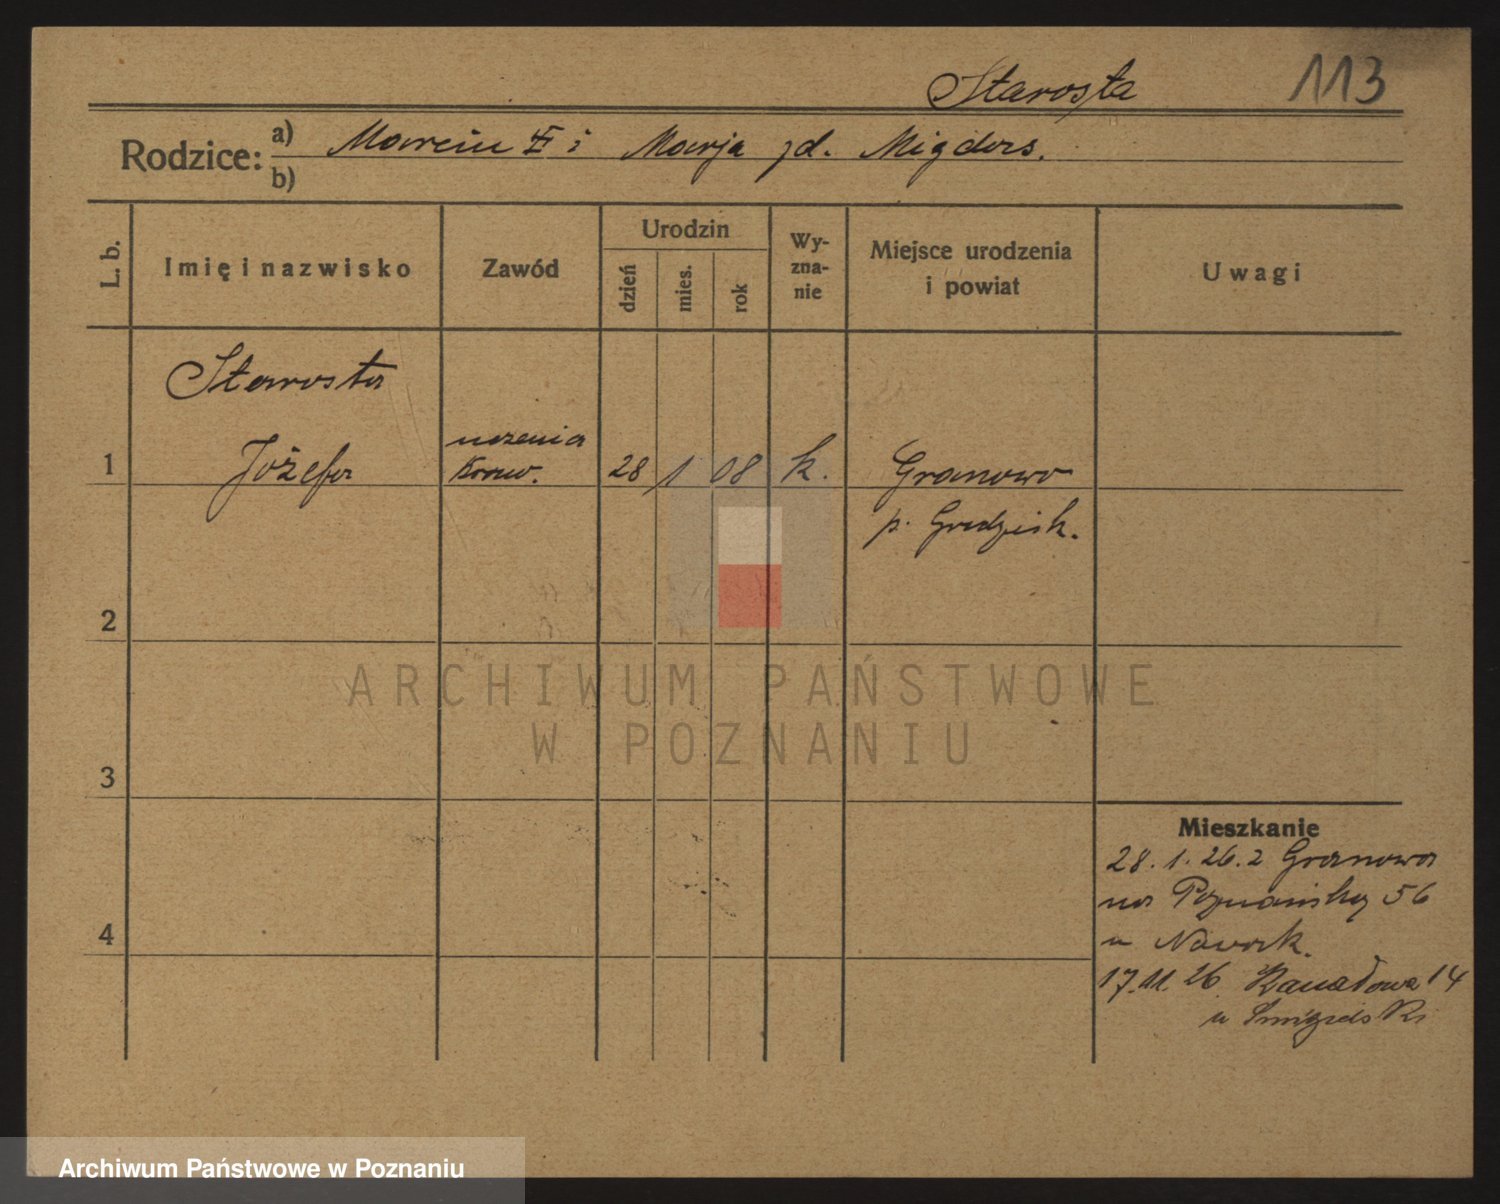 Starosta 113
Rodzice: a) Marcin i Marja zd. Migdas.
b)
L. b. Imię i nazwisko Zawód Urodzin dzień mies. rok Wy-zna-nie Miejsce urodzenia i powiat Uwagi
Starosta
1 Józefa uczenica kraw. 28 1 08 k. Granowo
p. Grodzisk.
2
3
4
Mieszkanie
28. 1. 26. z Granowa
na Poznańską 56
u Nawrk.
17.11.26. Kanałowa 14
u Śmigielski
ARCHIWUM PAŃSTWOWE
W POZNANIU
Archiwum Państwowe w Poznaniu